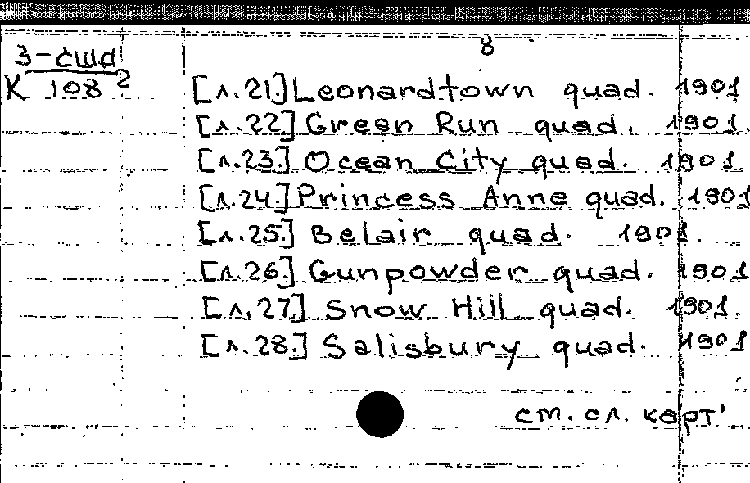 8
3-сша
К 108 2
[л.21.] Leonardtown quad. 1901
[л.22] Green Run quad. 1901.
[л.23.] Ocean City quad. 1901.
[л.24.] Princess Anne quad. 1901
[л.25.] Belair quad. 1901.
[л.26.] Gunpowder quad. 1901
[л.27.] Snow Hill quad. 1901.
[л.28.] Salisbury quad. 1901
см. сл. карт'